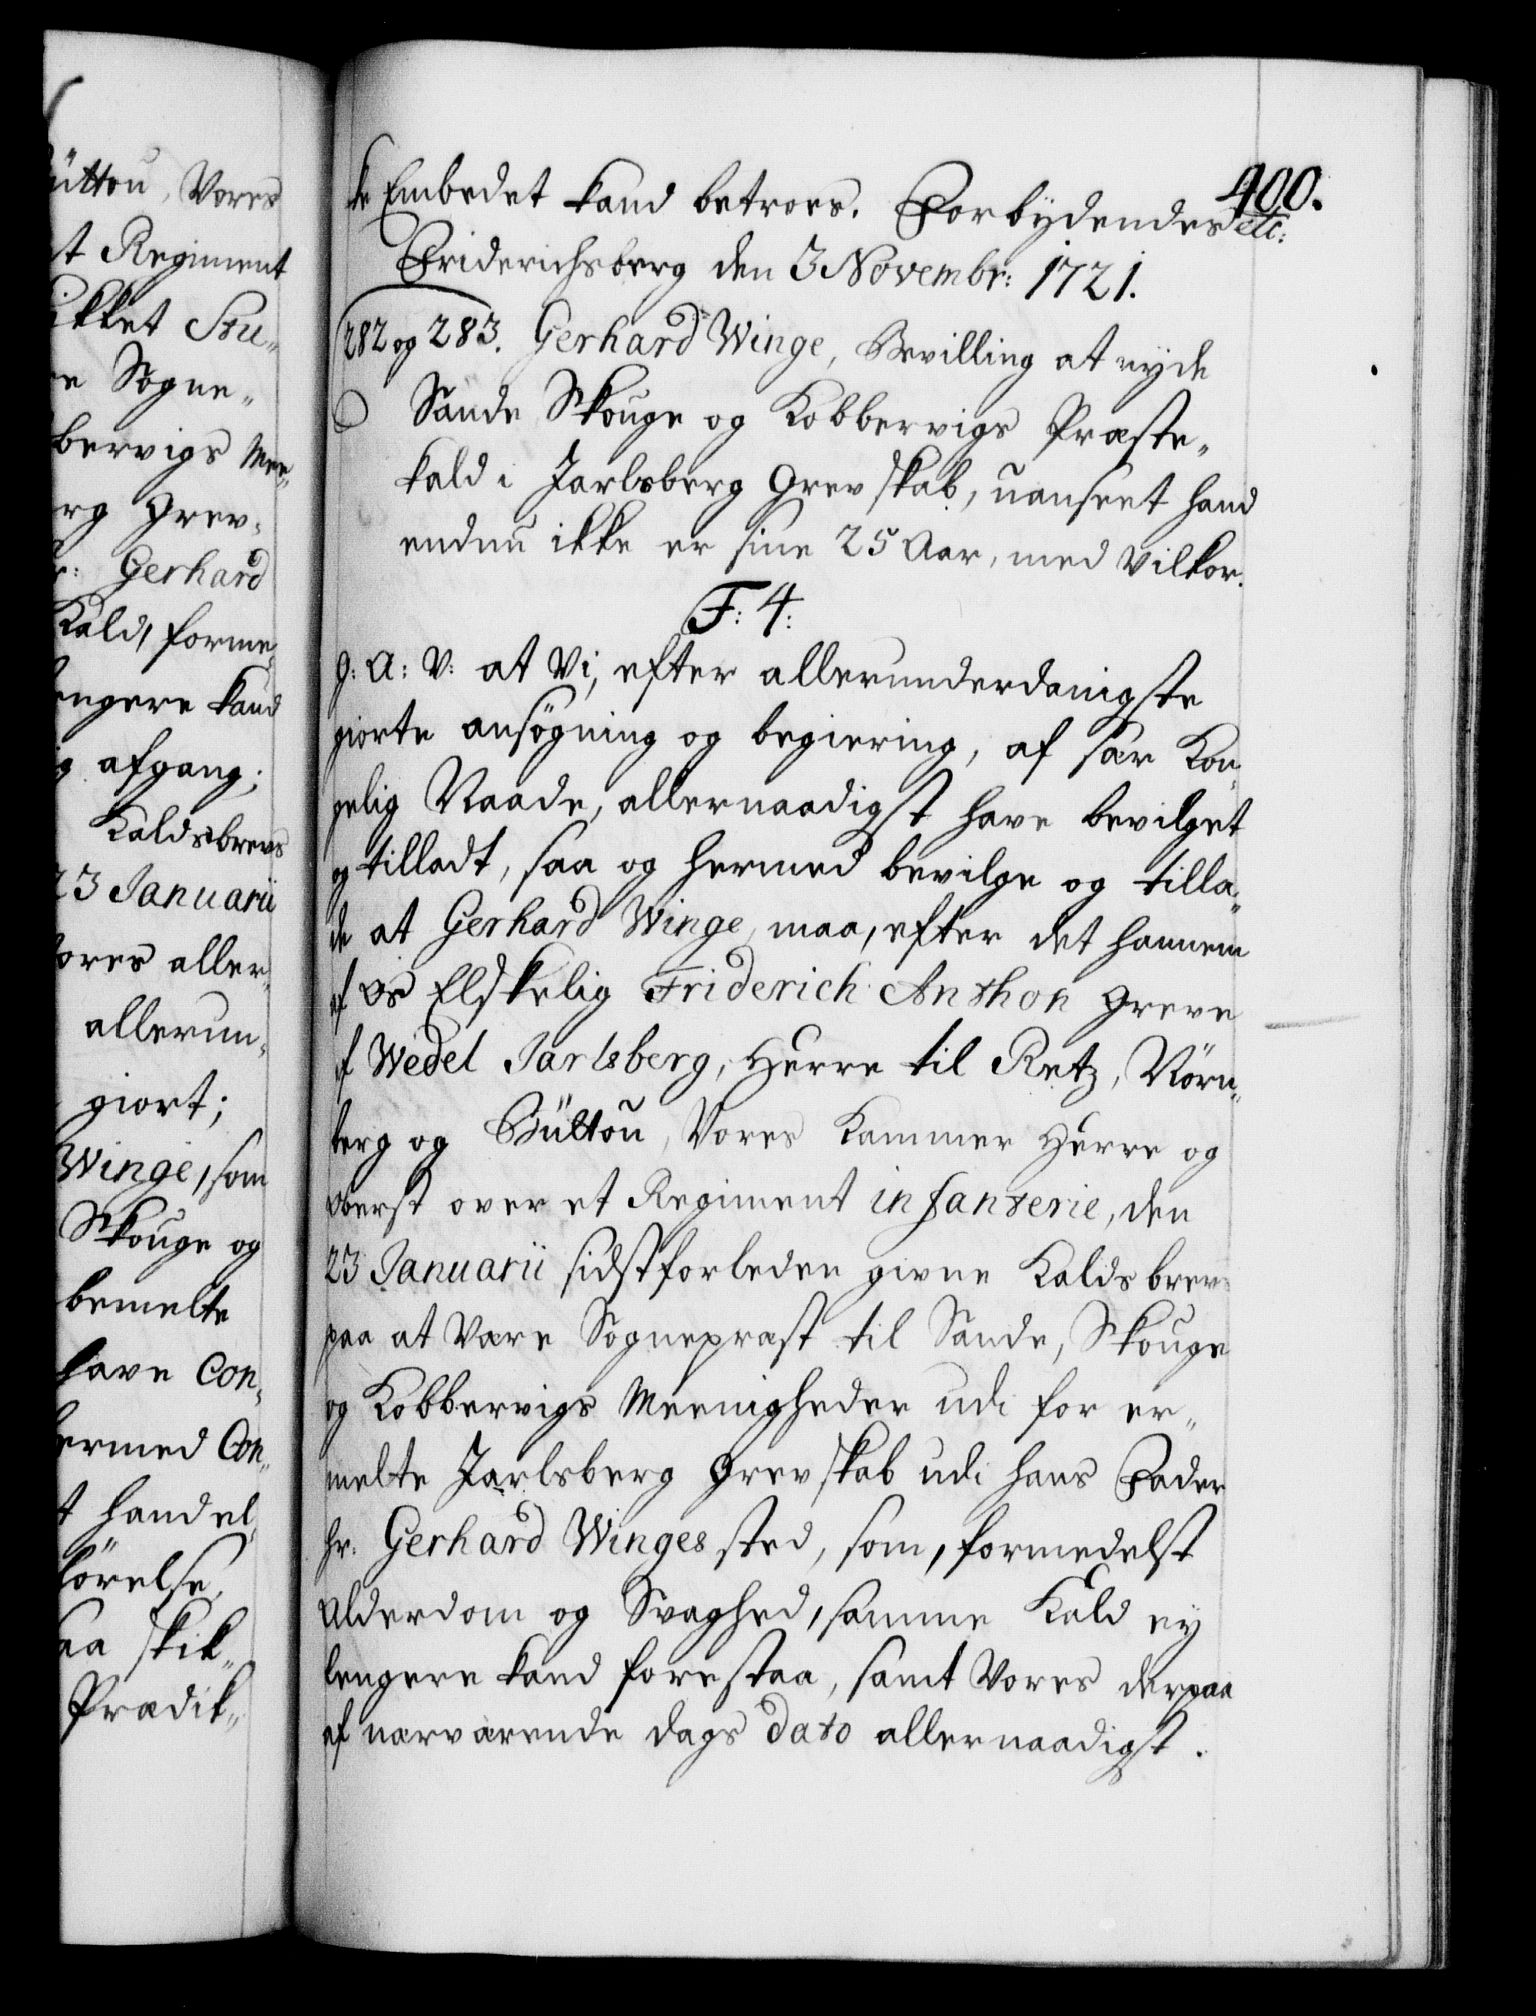 üttou, Vores
t Regiment
ikket Stu„
re Sogne„
bervigs Mee„
rg Grev„
r: Gerhard
Kald, forme„
engere kand
ig afgang;
Kaldsbrevs
23 Januarii
Vores aller„
allerun„
giort;
Winge, som
Skouge og
bemelte
have Con„
hermed Con„
t handel,
hörelse,
aa skik„
Prædik„
400.
ke Embedet kand betroes. Forbydendes etc:
Friderichsberg den 3 Novembr: 1721.
282 og 283. Gerhard Winge, Bevilling at nyde
Sande Skouge og Kobbervigs Præste„
kald i Jarlsberg Grevskab, uanseet hand
endnu ikke er sine 25 Aar, med Vilkor.
F: 4:
G: A: V: at Vi, efter allerunderdanigste
giorte ansøgning og begiering, af sær Kon„
gelig Naade, allernaadigst have bevilget
og tilladt, saa og hermed bevilge og tilla„
de at Gerhard Winge, maa, efter det hannem
af Os Elskelig Friderich Anthon Greve
af Wedel Jarlsberg, Herre til Retz, Nörn„
berg og Büttou, Vores Kammer Herre og
Oberst over et Regiment infanterie, den
23 Januarii sidstforleden givne Kalds brev
paa at være Sognepræst til Sande, Skouge
og Kobbervigs Meenigheder udi for er„
melte Jarlsberg Grevskab udi hans Fader
Hr. Gerhard Winges sted, som, formedelst
Alderdom og Svaghed, samme Kald ey
lengere kand forestaa, samt Vores derpaa
af nærværende dags dato allernaadigst.